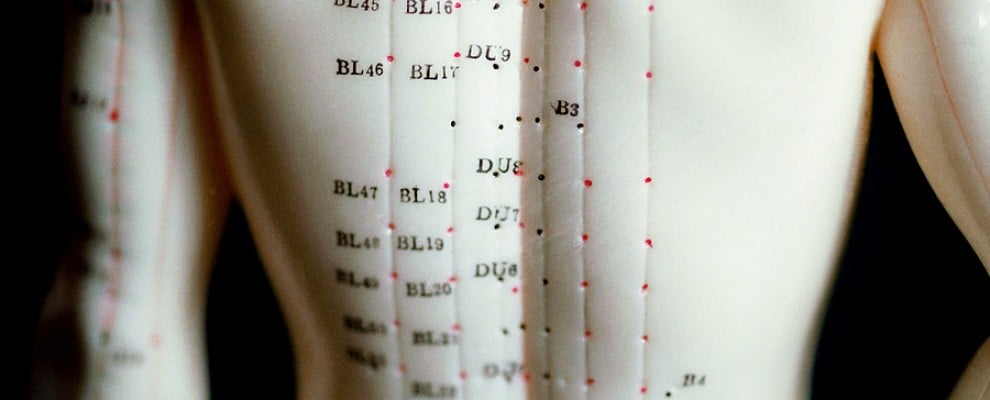 BL45 BL16
DU9
BL46 BL17
B3
DU8
BL47 BL18
DU7
BL48 BL19
DU6
BL49 BL20
BL21
B4